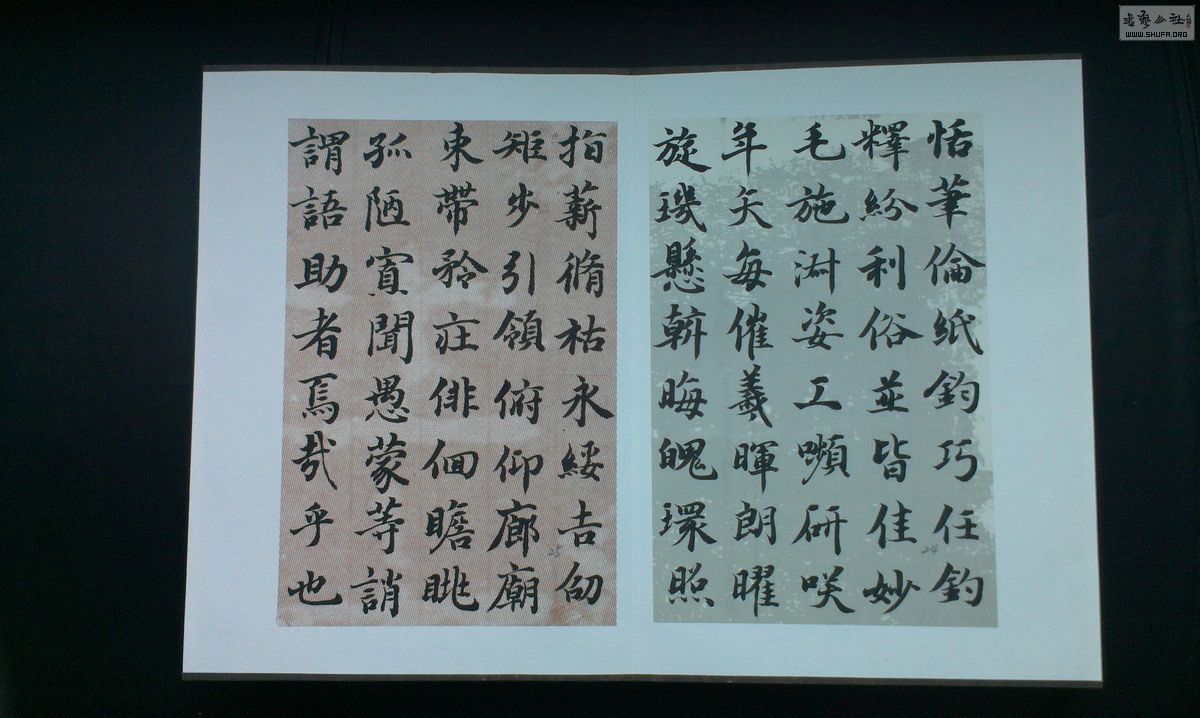 恬筆倫紙鈞巧任釣
釋紛利俗並皆佳妙
毛施淑姿工嚬研咲
年矢每催羲暉朗曜
旋璣懸斡晦魄環照
24
指薪脩祜永綏吉劭
矩步引領俯仰廊廟
束帶矜莊俳佪瞻眺
孤陋寡聞愚蒙等誚
謂語助者焉哉乎也
25
书艺公社
WWW.SHUFA.ORG